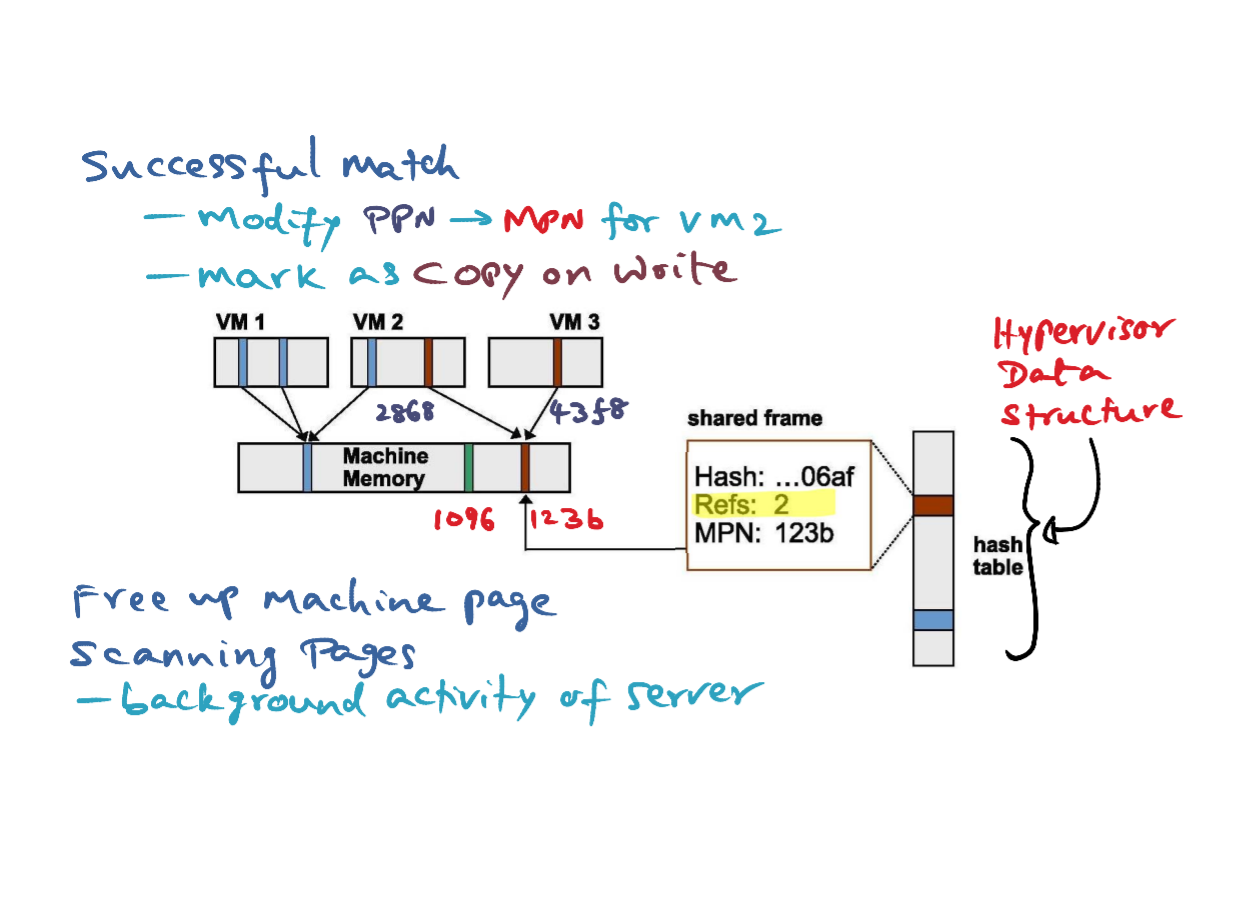 Successful match
— modify PPN → MPN for VM2
— mark as Copy on Write
VM 1 VM 2 VM 3
2868 43f8
Machine
Memory
1096 123b
shared frame
Hash: ...06af
Refs: 2
MPN: 123b
Hypervisor
Data
Structure
hash
table
Free up machine page
Scanning Pages
— background activity of server